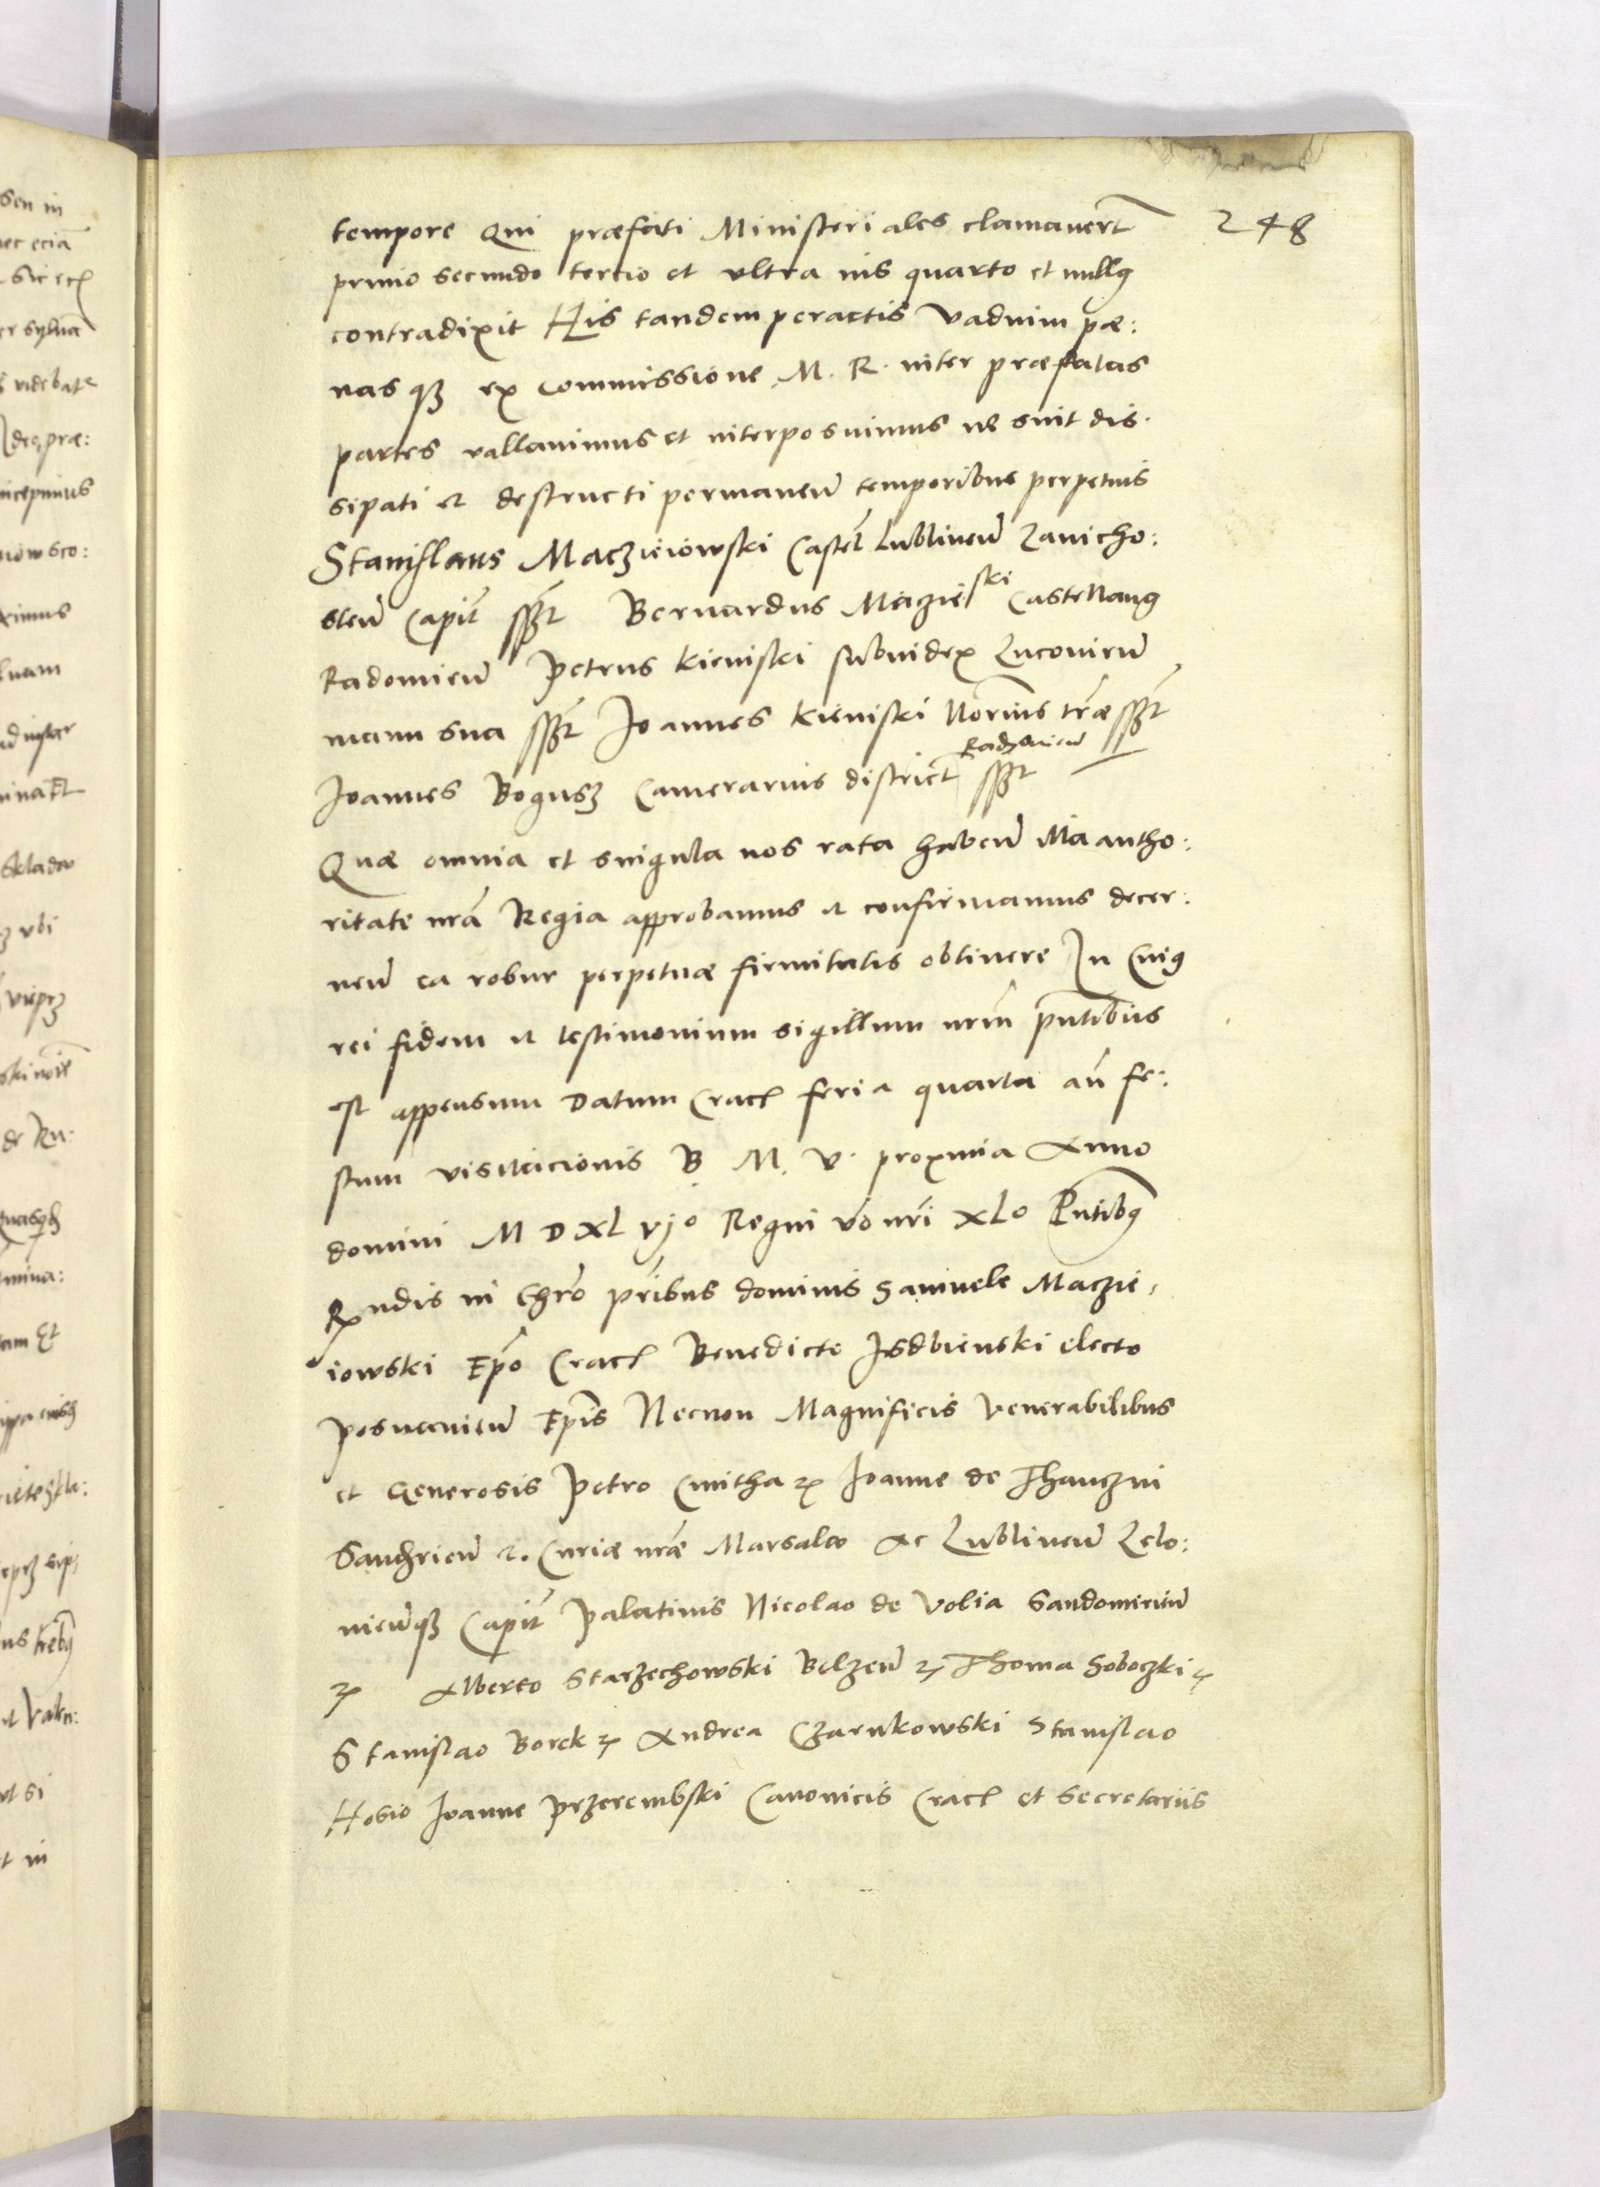 248
tempore Qui præfati Ministeriales clamavert
primo secundo tercio et ultra ius quarto et nullq
contradixit His tandem peractis vadium pæ:
nas qz ex commissione M. R. inter præfatas
partes vallavimus et interposuimus ne sint dis
sipati et destructi permaneñ temporibus perpetuis
Stanislaus Maczieiowski Castel Lublineñ Zavicho:
steñ Capit sszt Bernardus Maczieiski Castellanq
Radomieñ Petrus Kieniski subiudex Lucovieñ
manu sua sszt Joannes Kieniski Norius træ sszt
Joannes Bogusz Camerarius district Radzimieñ sszt
Quæ omnia et singula nos rata habeñ illa autho:
ritate nrã Regia approbamus et confirmamus decer:
neñ ea robur perpetuæ firmitatis obtinere In Cuiq
rei fidem et testimonium sigillum nrm pntibus
est appensum Datum Crac feria quarta añ fe:
stum visitacionis B. M. V. proxima Anno
domini M D XL vjo Regni vo nri XLo Pntibq
Rndis in Chro pribus dominis Samuele Maczie,
iowski Epo Crac Benedicto Isdbienski electo
Posnanieñ Epis Necnon Magnificis Venerabilibus
et Generosis Petro Cmitha Joanne de Thanczin
Sandrieñ et Curiæ nræ Marsalco Ac Lublineñ Lelo:
vieñqz Capit Palatinis Nicolao de Volia Sandomirieñ
Alberto Starzechowski Belzeñ Thoma Soboczki
Stanislao Borek Andrea Czarnkowski Stanislao
Hosio Joanne Przerembski Canonicis Crac et Secretariis